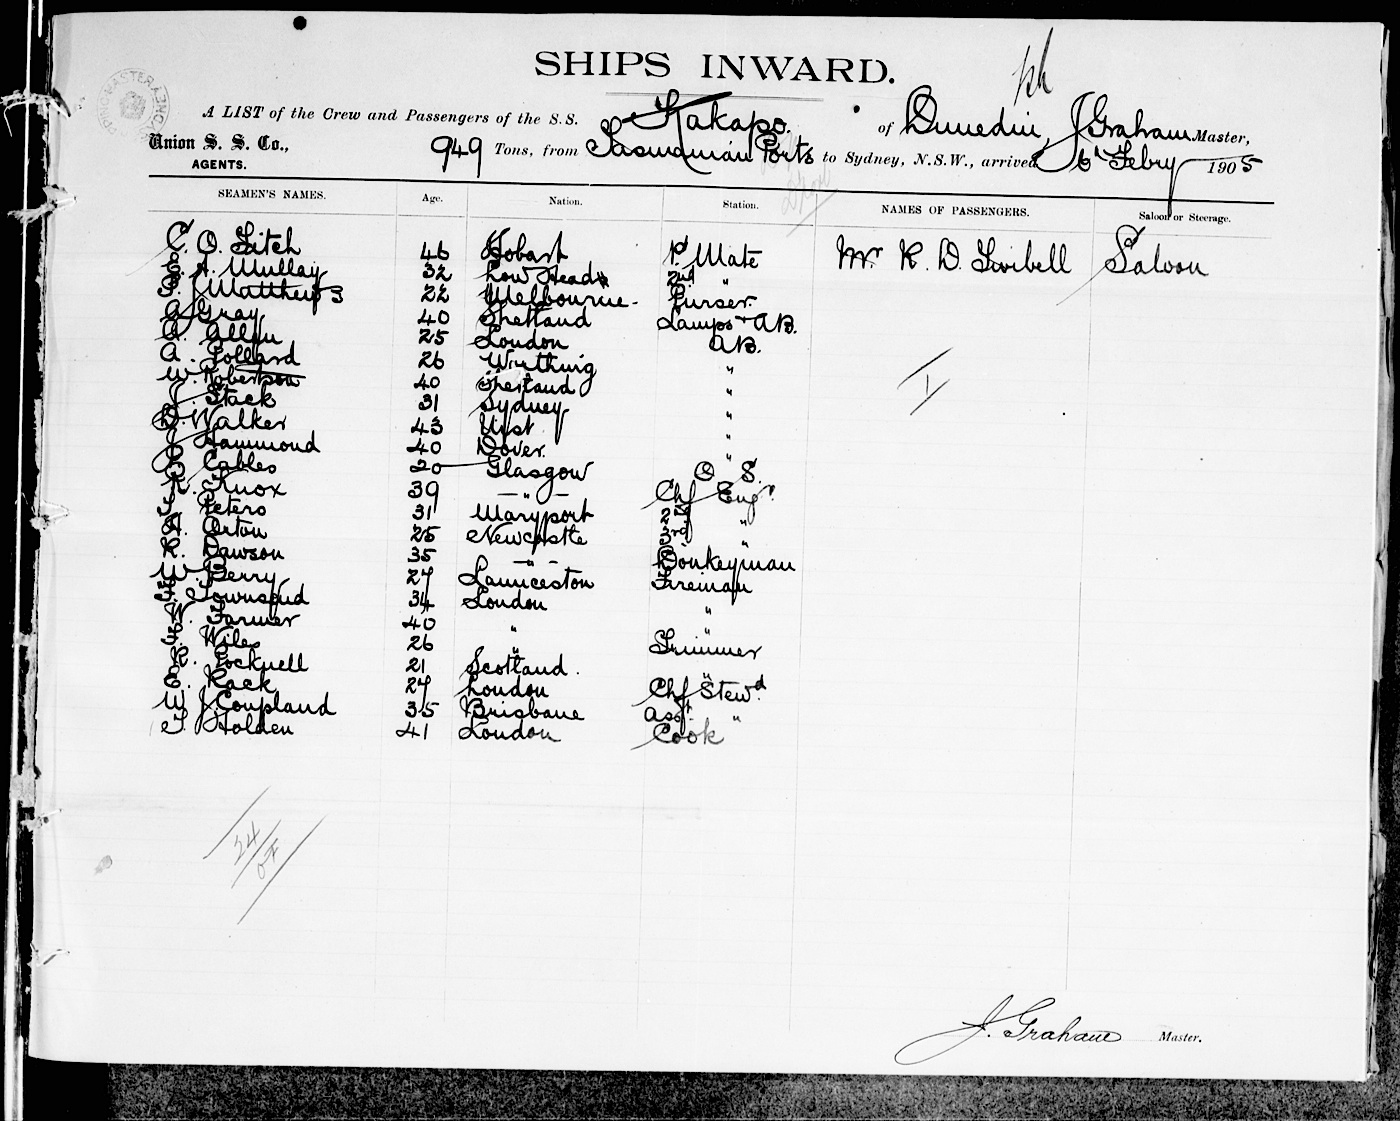 SHIPS INWARD.
A LIST of the Crew and Passengers of the S.S. Kakapo. of Dunedin, J Graham Master,
Union S. S. Co., AGENTS. 949 Tons, from Tasmanian Ports to Sydney, N.S.W., arrived 6th Febry 1905
SEAMEN'S NAMES. Age. Nation. Station. NAMES OF PASSENGERS. Saloon or Steerage.
C. O. Fitch 46 Hobart 1st Mate Mr. R. D. Saloon
A. Mullay 32 Low Heads 2nd "
Matthews 22 Melbourne Purser.
A Gray 40 Shetland Lamps + AB.
A. Allen 25 London AB.
A. Pollard 26 Worthing "
W. Robertson 40 Shetland "
J. Stack 31 Sydney "
D. Walker 43 Uist "
J Hammond 40 Dover. "
Cables 20 Glasgow O S.
R. Knox 39 " Chf Engr.
Peters 31 Maryport 2nd "
A. Orton 25 Newcastle 3rd "
R. Dawson 35 " Donkeyman
W. Berry 27 Launceston Fireman
Townsend 34 London "
W. Farmer 40 " "
Wiles 26 " Trimmer
R. Pocknell 21 Scotland. "
E. Rack 27 London Chf Stewd.
W J Coupland 35 Brisbane Asst "
T. Holden 41 London Cook
1
24
J. Graham Master.